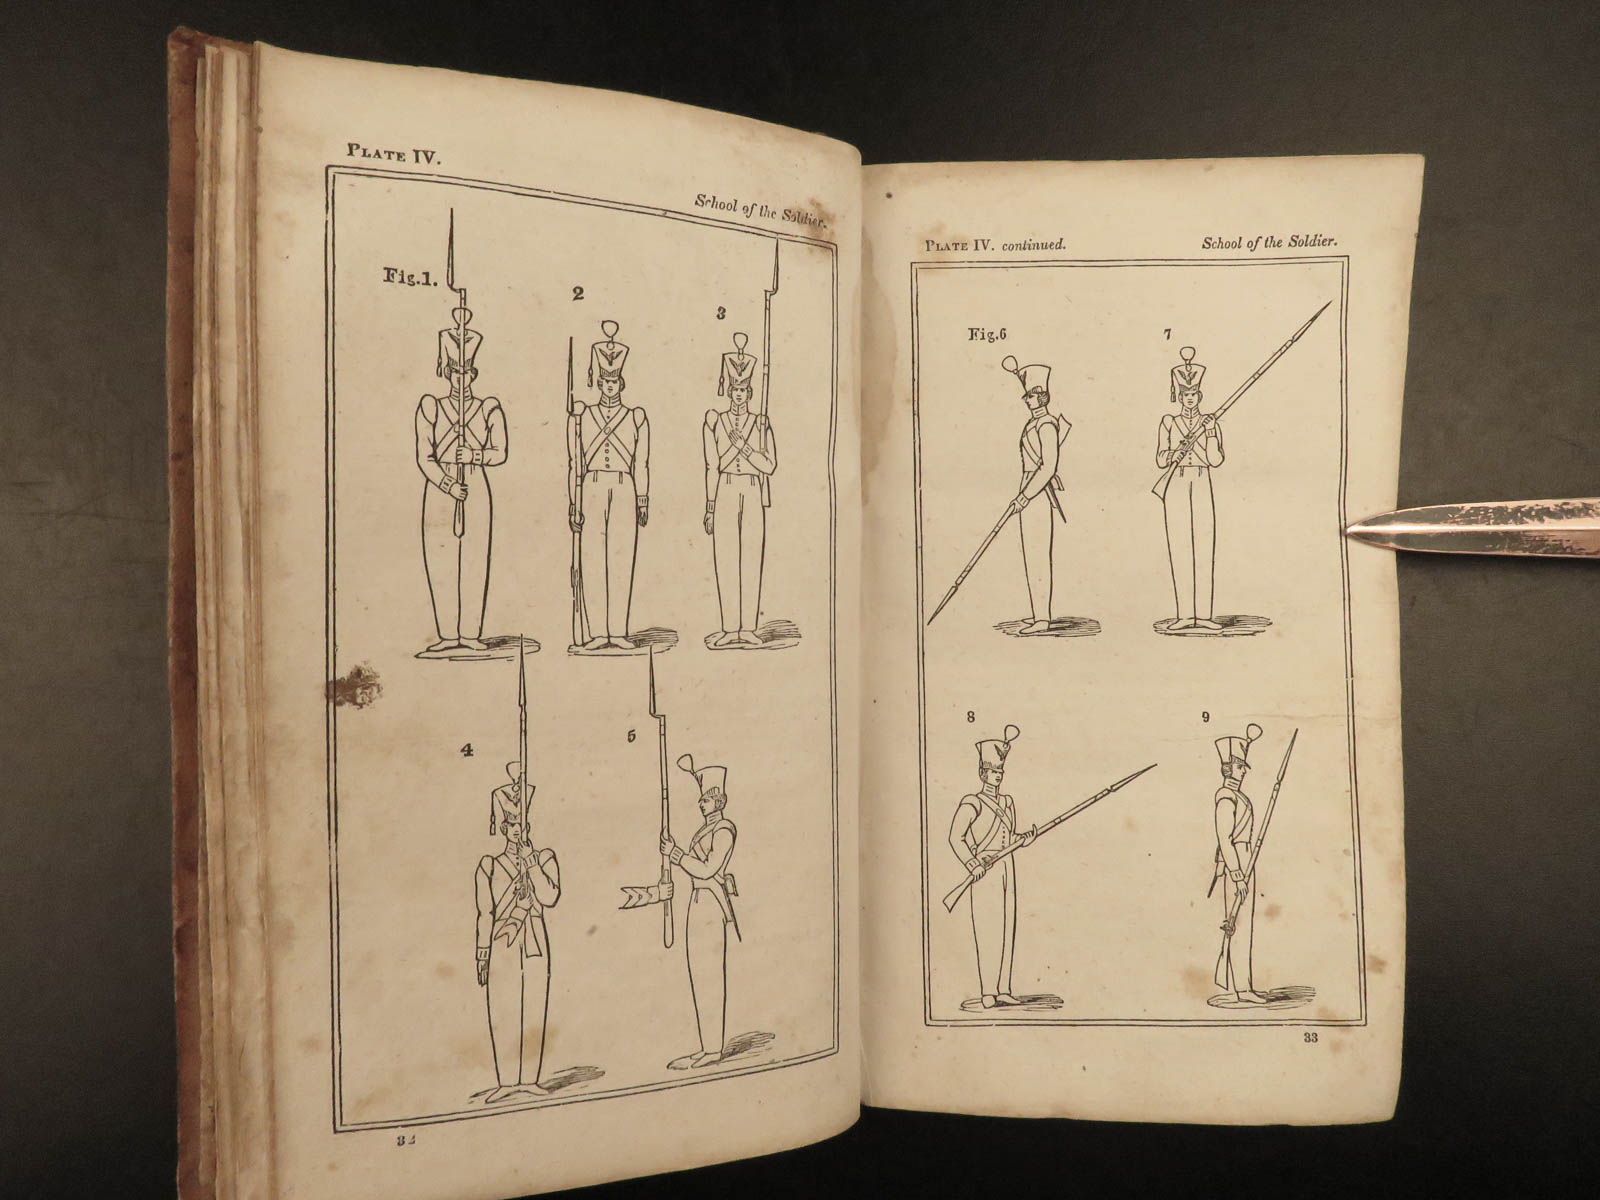 PLATE IV.
School of the Soldier.
Fig.1.
2
3
4
5
32
PLATE IV. continued.
School of the Soldier.
Fig.6
7
8
9
33